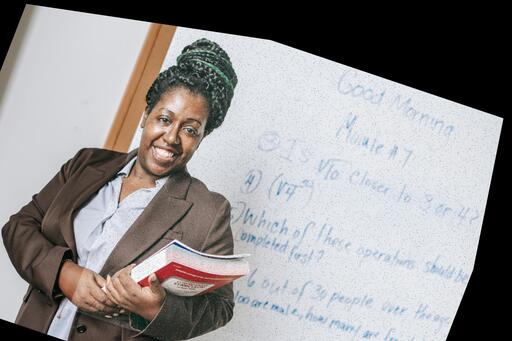 Good Morning
Module #7
③ Is √10 closer to 3 or 4?
④
Which of these operations should be
completed first?
6 out of 30 people over the age
are male, how many are